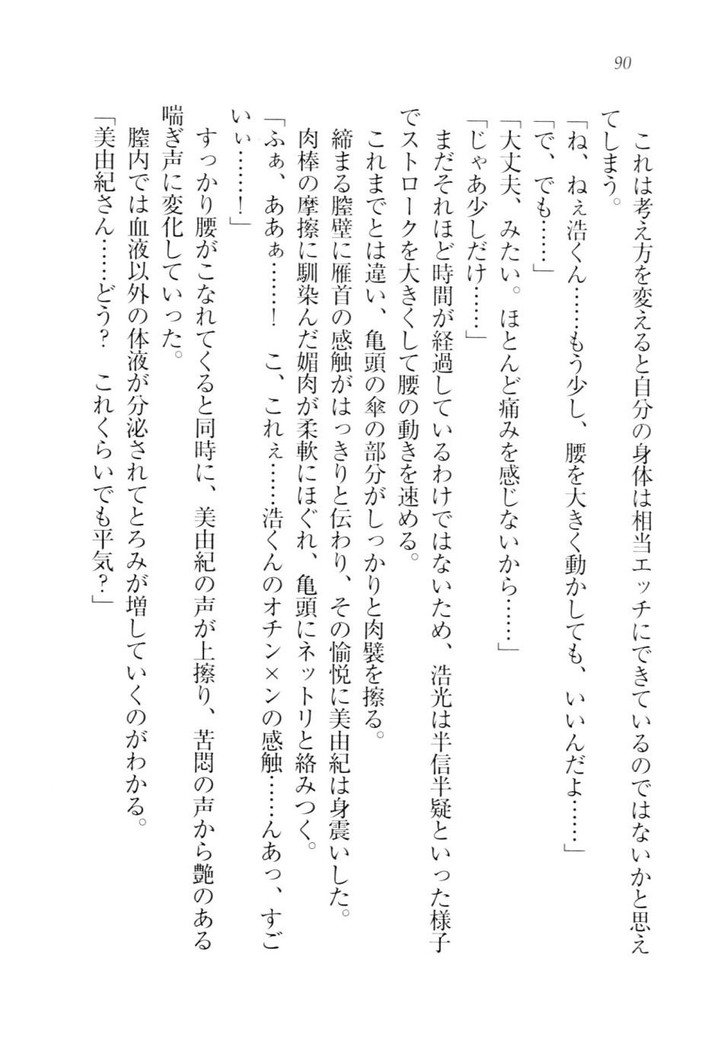 90
これは考え方を変えると自分の身体は相当エッチにできているのではないかと思え
てしまう。
「ね、ねぇ浩くん……もう少し、腰を大きく動かしても、いいんだよ……」
「で、でも……」
「大丈夫、みたい。ほとんど痛みを感じないから……」
「じゃあ少しだけ……」
まだそれほど時間が経過しているわけではないため、浩光は半信半疑といった様子
でストロークを大きくして腰の動きを速める。
これまでとは違い、亀頭の傘の部分がしっかりと肉襞を擦る。
締まる膣壁に雁首の感触がはっきりと伝わり、その愉悦に美由紀は身震いした。
肉棒の摩擦に馴染んだ媚肉が柔軟にほぐれ、亀頭にネットリと絡みつく。
「ふぁ、ああぁ……！　こ、これぇ……浩くんのオチン×ンの感触……んあっ、すご
いぃ……！」
すっかり腰がこなれてくると同時に、美由紀の声が上擦り、苦悶の声から艶のある
喘ぎ声に変化していった。
膣内では血液以外の体液が分泌されてとろみが増していくのがわかる。
「美由紀さん……どう？　これくらいでも平気？」